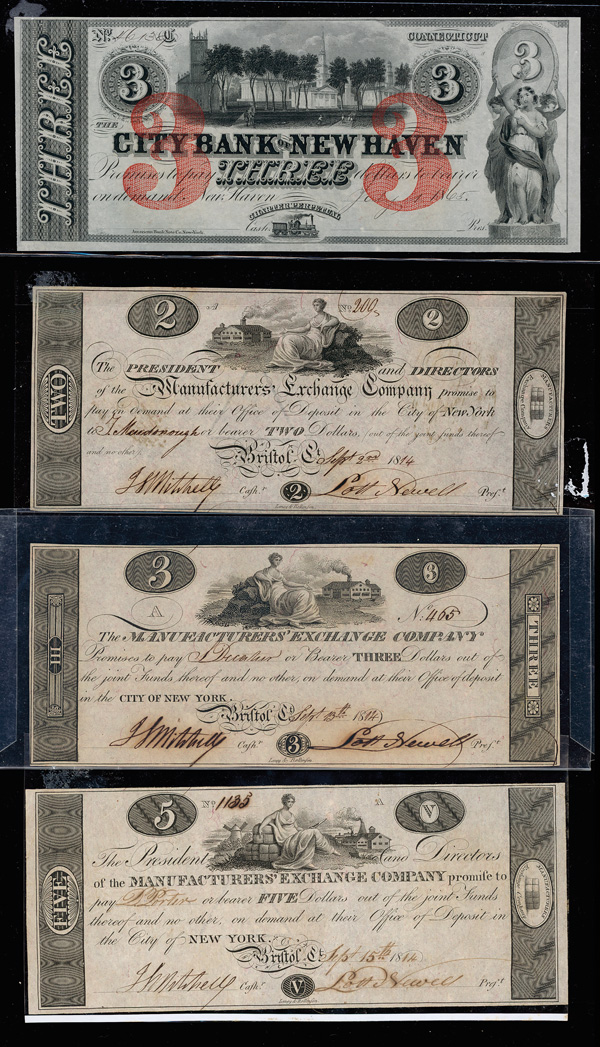 THREE
Nº
C
CONNECTICUT
3 3 3
THE
CITY BANK OF NEW HAVEN
3 3
Promises to pay THREE dollars to bearer
on demand. New Haven 1865.
CHARTER PERPETUAL
Cash. Pres.
American Bank Note Co. New-York.
2 A Nº 200 2
The PRESIDENT and DIRECTORS
of the Manufacturers' Exchange Company promise to
pay on demand at their Office of Deposit in the City of New York
to or bearer TWO Dollars, (out of the joint funds thereof
and no other)
Bristol Ct. Sept 2nd 1814
Mitchell Cashr. 2 Lott Newell Prest.
TWO
MANUFACTURERS
Exchange Compy.
3 3
A Nº 465
The MANUFACTURERS' EXCHANGE COMPANY
Promises to pay or Bearer THREE Dollars out of
the joint Funds thereof and no other, on demand at their Office of deposit
in the CITY OF NEW YORK.
Bristol Ct. Sept 13th 1814
Mitchell Cashr. 3 Lott Newell Prest.
III
THREE
5 Nº 1135 A V
The President and Directors
of the MANUFACTURERS' EXCHANGE COMPANY promise to
pay or bearer FIVE Dollars out of the joint Funds
thereof and no other, on demand at their Office of Deposit in
the City of NEW YORK.
Bristol Ct. Sept 15th 1814
Mitchell Cashr. V Lott Newell Prest.
FIVE
MANUFACTURERS